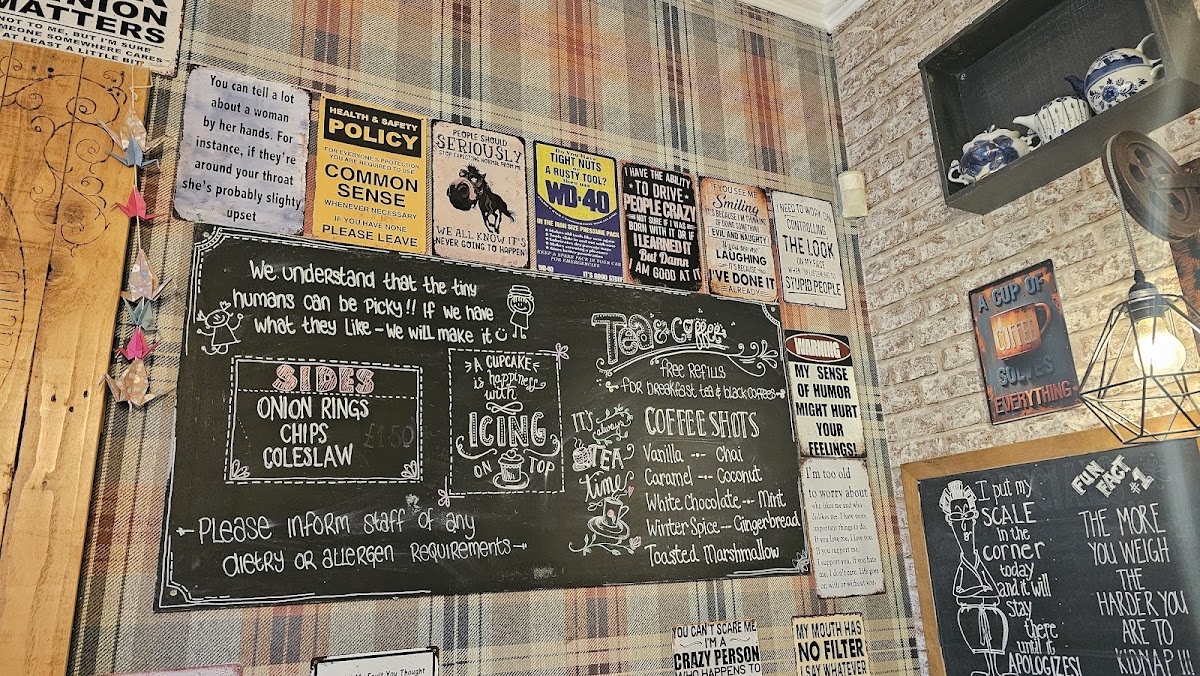 NION
MATTERS
NOT TO ME, BUT I'M SURE
SOMEONE SOMEWHERE CARES
AT LEAST A LITTLE BIT!
You can tell a lot
about a woman
by her hands. For
instance, if they're
around your throat
she's probably slighty
upset
HEALTH & SAFETY
POLICY
FOR EVERYONE'S PROTECTION
YOU ARE REQUIRED TO USE
COMMON
SENSE
WHENEVER NECESSARY
IF YOU HAVE NONE
PLEASE LEAVE
PEOPLE SHOULD
SERIOUSLY
STOP EXPECTING NORMAL FROM ME
WE ALL KNOW IT'S
NEVER GOING TO HAPPEN
Do You Have
TIGHT NUTS
OR
A RUSTY TOOL?
WD-40
IN THE MAN SIZE PRESSURE PACK
KEEP A SPARE PACK IN YOUR CAR
FOR EMERGENCIES
WD-40
IT'S GOOD STUFF
I HAVE THE ABILITY
TO DRIVE
PEOPLE CRAZY
NOT SURE IF I WAS
BORN WITH IT OR IF
I LEARNED IT
But Damn
I AM GOOD AT IT
IF YOU SEE ME
Smiling
IT'S BECAUSE I'M THINKING
OF DOING SOMETHING
EVIL AND NAUGHTY
If you see me
LAUGHING
IT'S BECAUSE
I'VE DONE IT
ALREADY
I NEED TO WORK ON
CONTROLLING
THE LOOK
ON MY FACE
WHEN I'M LISTENING TO
STUPID PEOPLE
We understand that the tiny
humans can be picky!! If we have
what they like - we will make it
SIDES
ONION RINGS
CHIPS
COLESLAW
£1.50
A CUPCAKE
is happiness
with
ICING
ON TOP
Please inform staff of any
dietry or allergen requirements
Tea & Coffee
free refills
for breakfast tea & black coffees
IT'S
always
TEA
time
COFFEE SHOTS
Vanilla -- Chai
Caramel -- Coconut
White Chocolate -- Mint
Winter Spice -- Gingerbread
Toasted Marshmallow
WARNING
MY SENSE
OF HUMOR
MIGHT HURT
YOUR
FEELINGS!
I'm too old
to worry about
who likes me and who
dislikes me. I have more
important things to do.
If you love me, I love you.
If you support me,
I support you. if you hate
me, I don't care. Life goes
on with or without you.
A CUP OF
SOLVES
EVERYTHING
I put my
SCALE
in the
corner
today
and it will
stay
there
until it
APOLOGIZES!
FUN
FACT
#1
THE MORE
YOU WEIGH
THE
HARDER YOU
ARE TO
KIDNAP !!!
YOU CAN'T SCARE ME
I'M A
CRAZY PERSON
WHO HAPPENS TO
MY MOUTH HAS
NO FILTER
I SAY WHATEVER
You Thought